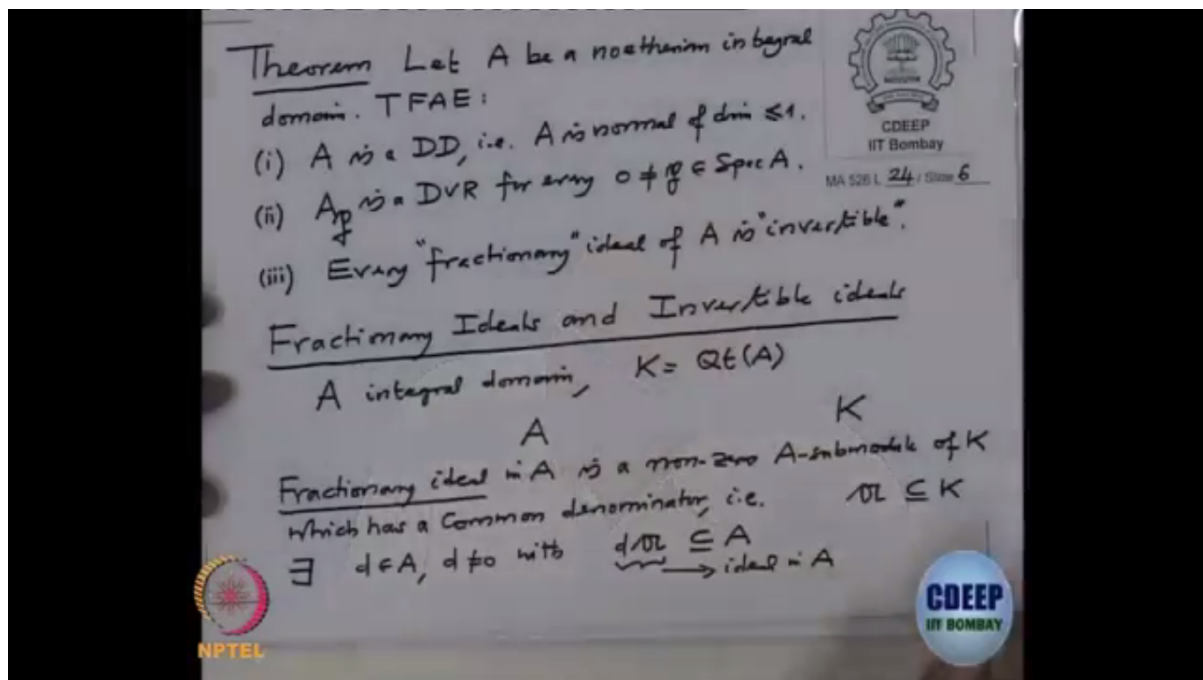 Theorem Let A be a noetherian integral
domain. TFAE:
(i) A is a DD, i.e. A is normal of dim ≤1.
(ii) A_𝔭 is a DVR for every 0 ≠ 𝔭 ∈ Spec A.
(iii) Every "fractionary" ideal of A is "invertible".
CDEEP
IIT Bombay
MA 526 L 24 / Slide 6
Fractionary Ideals and Invertible ideals
A integral domain, K = Qt(A)
A K
Fractionary ideal in A is a non-zero A-submodule of K
which has a common denominator, i.e. 𝔄 ⊆ K
∃ d ∈ A, d ≠ 0 with d𝔄 ⊆ A
→ ideal in A
NPTEL
CDEEP
IIT BOMBAY